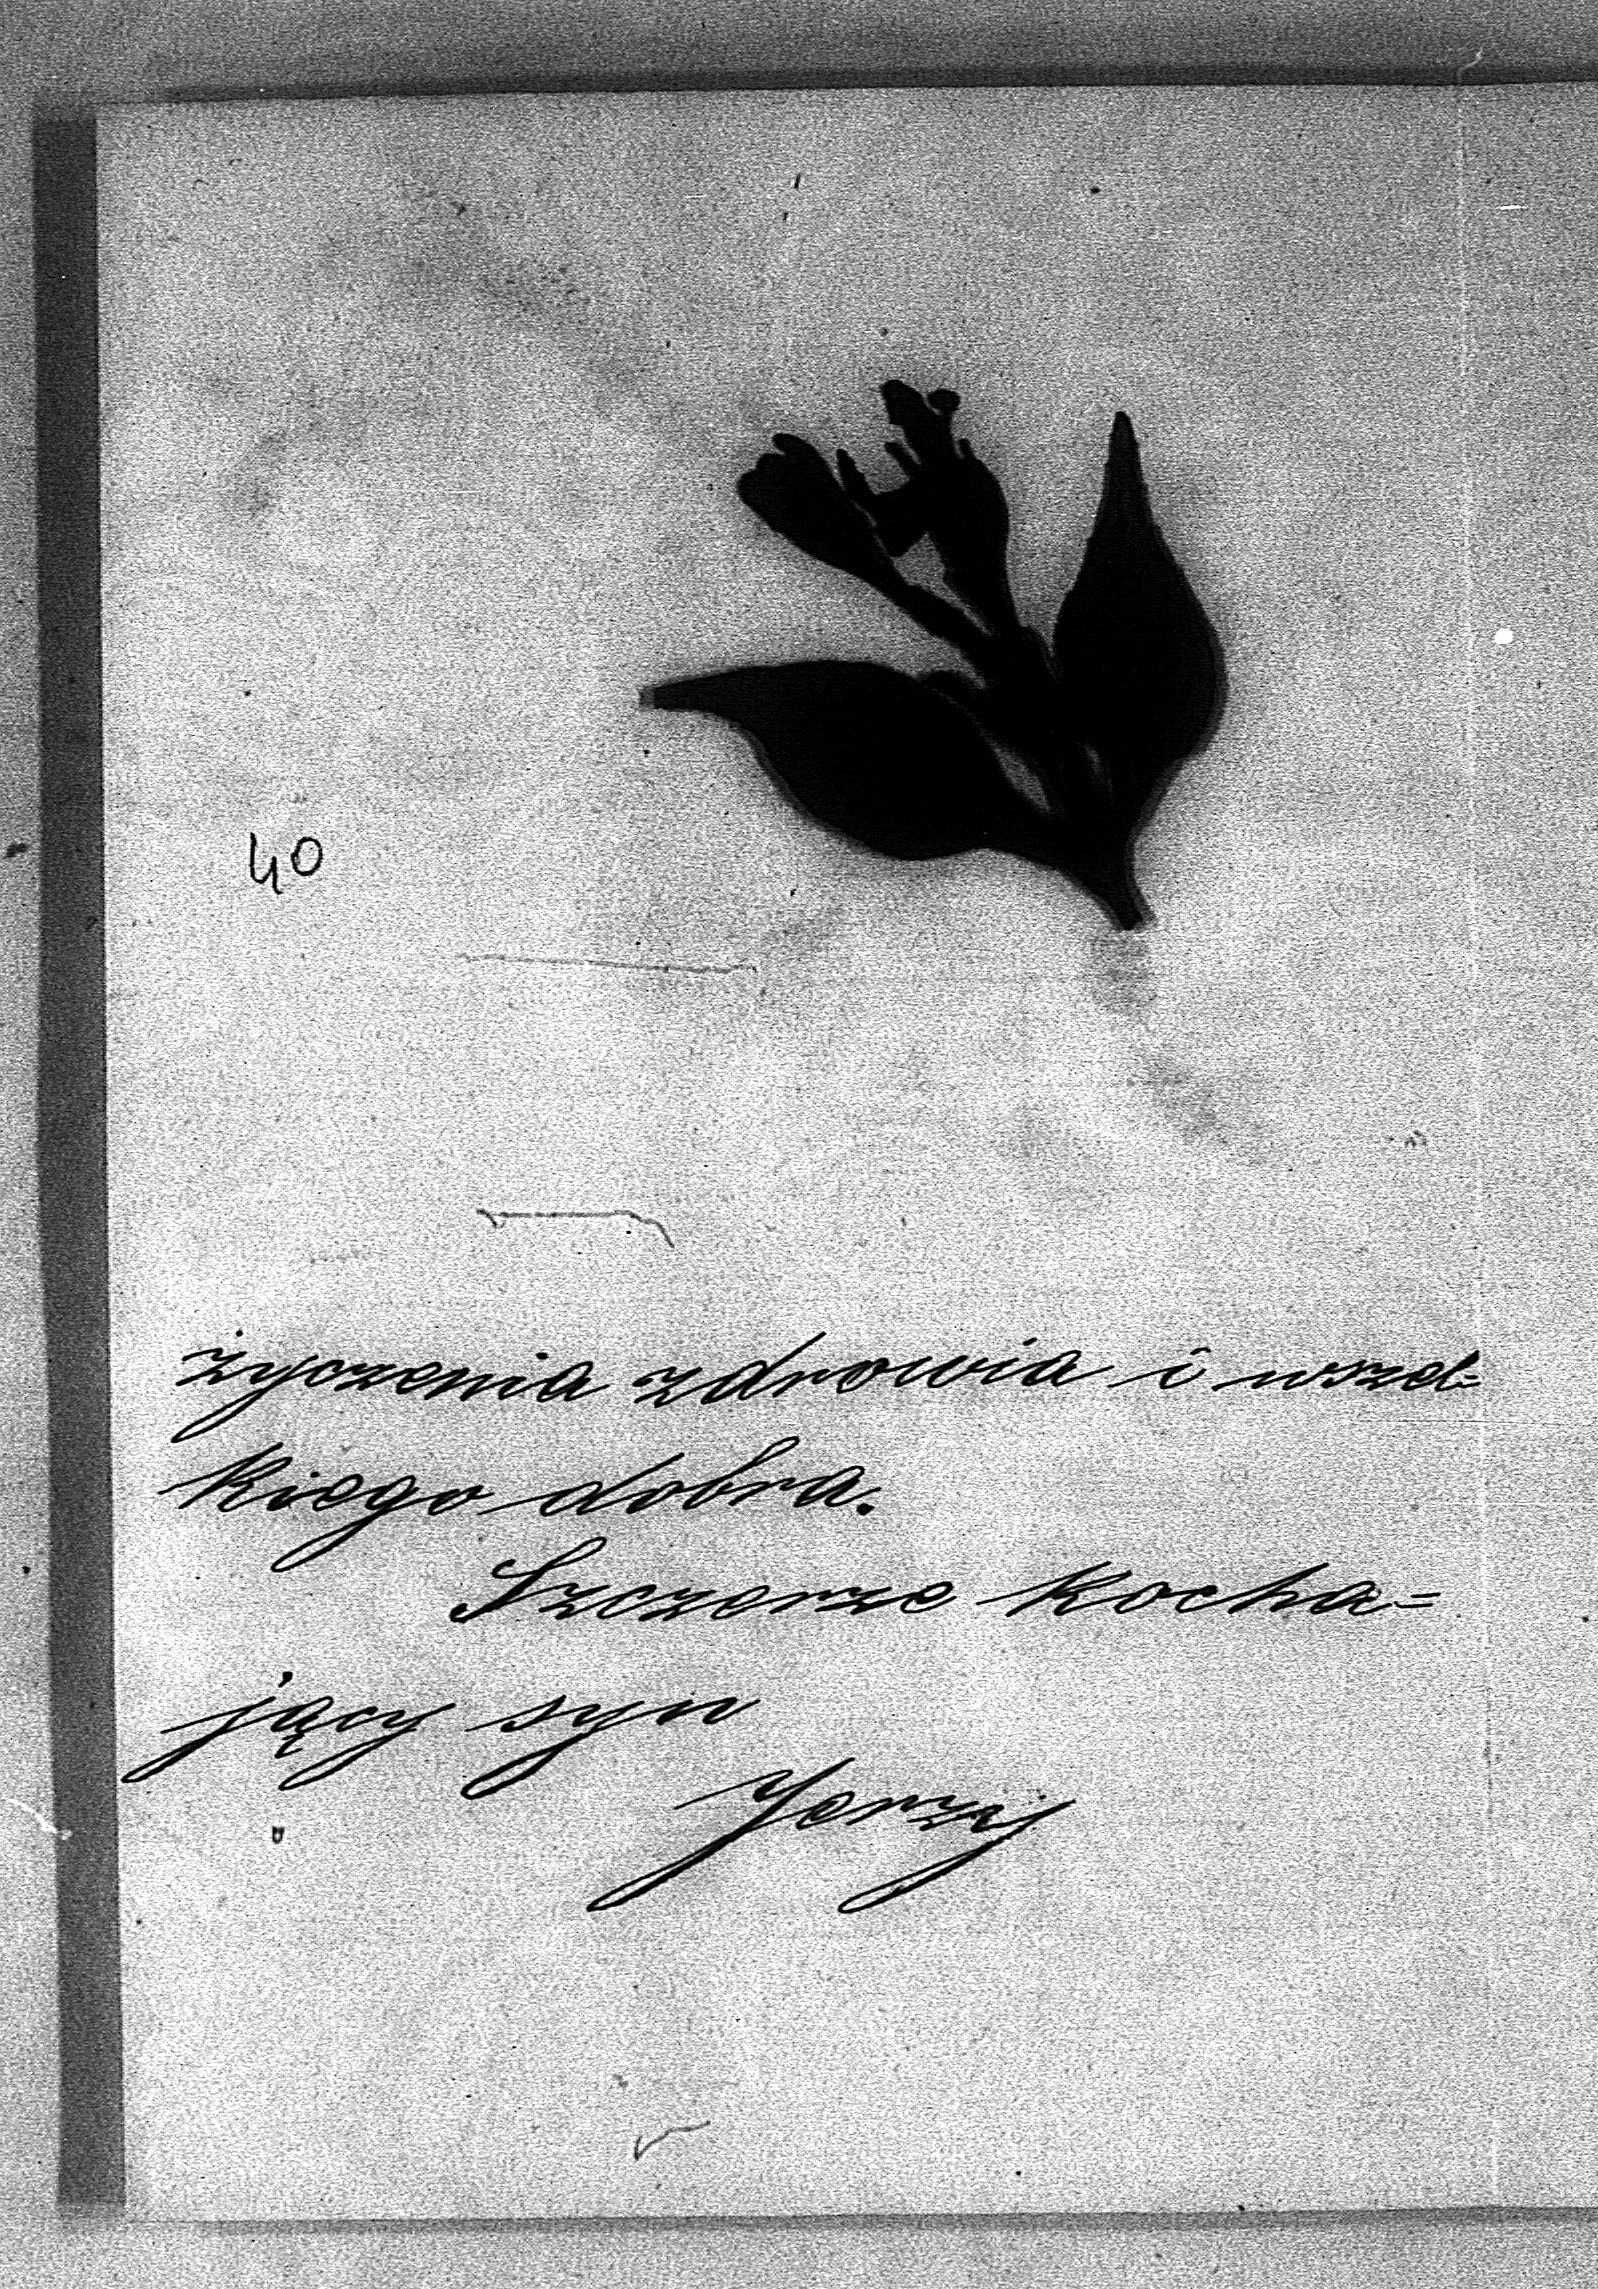 40
życzenia zdrowia i wszel-
kiego dobra.
Szczerze kocha=
jący syn
Jerzy